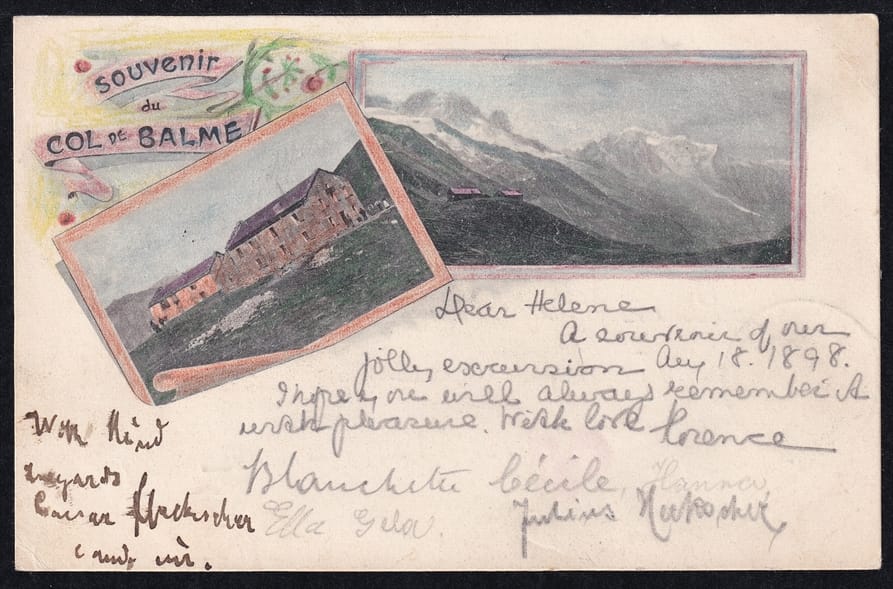 Souvenir
du
COL DE BALME
Dear Helene
A souvenir of our
jolly excursion Aug 18. 1898.
I hope you will always remember it
with pleasure. With love Florence
Blanchette Cécile, Hanna,
Ella Gela.
Julius
With kind
regards
Caesar
cand. iur.